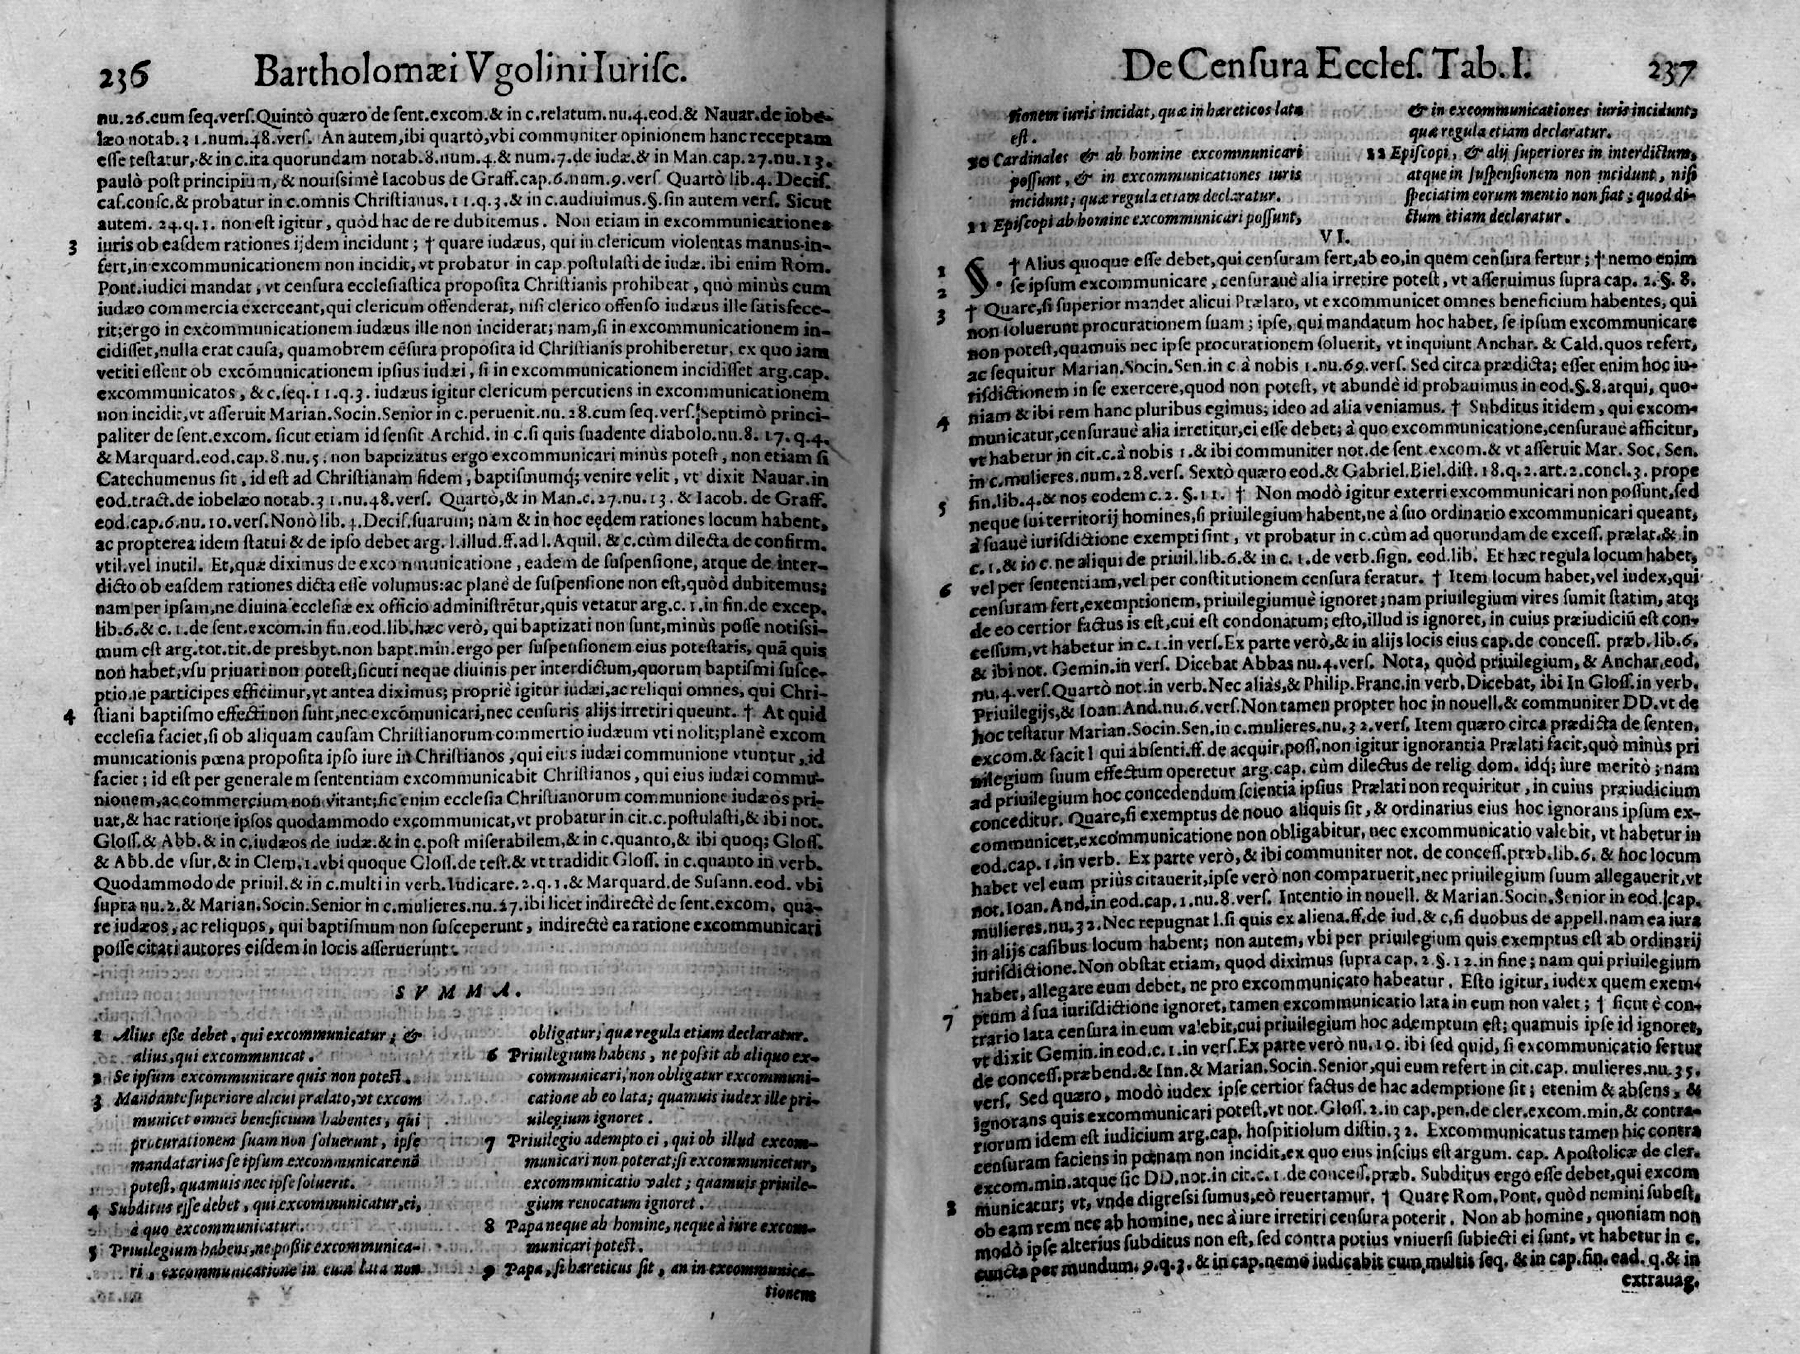 236 Bartholomæi Vgolini Iurisc.
nu.26.cum seq.vers.Quintò quæro de sent.excom.& in c.relatum.nu.4.eod.& Nauar.de iobe-
læo notab.31.num.48.vers. An autem,ibi quartò,vbi communiter opinionem hanc receptam
esse testatur,& in c.ita quorundam notab.8.num.4.& num.7.de iudæ.& in Man.cap.27.nu.13.
paulò post principium,& nouissimè Iacobus de Graff.cap.6.num.9.vers. Quartò lib.4. Decis.
cas.consc.& probatur in c.omnis Christianus.11.q.3.& in c.audiuimus.§.sin autem vers. Sicut
autem. 24.q.1. non est igitur, quòd hac de re dubitemus. Non etiam in excommunicationes
3 iuris ob easdem rationes ijdem incidunt; † quare iudæus, qui in clericum violentas manus in-
fert,in excommunicationem non incidit, vt probatur in cap.postulasti de iudæ. ibi enim Rom.
Pont.iudici mandat, vt censura ecclesiastica proposita Christianis prohibeat, quò minùs cum
iudæo commercia exerceant,qui clericum offenderat, nisi clerico offenso iudæus ille satisfece-
rit;ergo in excommunicationem iudæus ille non inciderat; nam,si in excommunicationem in-
cidisset,nulla erat causa, quamobrem cẽsura proposita id Christianis prohiberetur, ex quo iam
vetiti essent ob excõmunicationem ipsius iudæi, si in excommunicationem incidisset arg.cap.
excommunicatos, & c.seq.11.q.3. iudæus igitur clericum percutiens in excommunicationem
non incidit,vt asseruit Marian.Socin.Senior in c.peruenit.nu.28.cum seq.vers.Septimò princi-
paliter de sent.excom. sicut etiam id sensit Archid. in c.si quis suadente diabolo.nu.8. 17.q.4.
& Marquard.eod.cap.8.nu.5. non baptizatus ergo excommunicari minùs potest, non etiam si
Catechumenus sit, id est ad Christianam fidem, baptismumq; venire velit, vt dixit Nauar.in
eod.tract.de iobelæo notab.31.nu.48.vers. Quartò,& in Man.c.27.nu.13.& Iacob. de Graff.
eod.cap.6.nu.10.vers.Nonò lib.4.Decis.suarum; nàm & in hoc eędem rationes locum habent,
ac propterea idem statui & de ipso debet arg. l.illud.ff.ad l.Aquil. & c.cùm dilecta de confirm.
vtil.vel inutil. Et,quæ diximus de excommunicatione, eadem de suspensione, atque de inter-
dicto ob easdem rationes dicta esse volumus:ac planè de suspensione non est,quòd dubitemus;
nam per ipsam,ne diuina ecclesiæ ex officio administrẽtur,quis vetatur arg.c.1.in fin.de excep.
lib.6.& c.1.de sent.excom.in fin.eod.lib.hæc verò, qui baptizati non sunt,minùs posse notissi-
mum est arg.tot.tit.de presbyt.non bapt.min.ergo per suspensionem eius potestatis, quã quis
non habet,vsu priuari non potest,sicuti neque diuinis per interdictum,quorum baptismi susce-
ptione participes efficimur,vt antea diximus; propriè igitur iudæi,ac reliqui omnes, qui Chri-
4 stiani baptismo effecti non sunt,nec excõmunicari,nec censuris alijs irretiri queunt. † At quid
ecclesia faciet,si ob aliquam causam Christianorum commertio iudæum vti nolit;planè excom
municationis pœna proposita ipso iure in Christianos, qui eius iudæi communione vtuntur,id
faciet; id est per generalem sententiam excommunicabit Christianos, qui eius iudæi commu-
nionem,ac commercium non vitant;sic enim ecclesia Christianorum communione iudæos pri-
uat,& hac ratione ipsos quodammodo excommunicat,vt probatur in cit.c.postulasti,& ibi not.
Gloss.& Abb.& in c.iudæos de iudæ.& in c.post miserabilem,& in c.quanto,& ibi quoq; Gloss.
& Abb.de vsur.& in Clem.1.vbi quoque Gloss.de test.& vt tradidit Gloss. in c.quanto in verb.
Quodammodo de priuil.& in c.multi in verb.Iudicare.2.q.1.& Marquard.de Susann.eod. vbi
supra nu.2.& Marian.Socin.Senior in c.mulieres.nu.27.ibi licet indirectè de sent.excom. qua-
re iudæos, ac reliquos, qui baptismum non susceperunt, indirectè ea ratione excommunicari
posse citati autores eisdem in locis asseruerunt.
SVMMA.
1 Alius esse debet, qui excommunicatur; &
alius,qui excommunicat.
2 Se ipsum excommunicare quis non potest.
3 Mandante superiore alicui prælato,vt excom
municet omnes beneficium habentes, qui
procurationem suam non soluerunt, ipse
mandatarius se ipsum excommunicare nõ
potest, quamuis nec ipse soluerit.
4 Subditus esse debet, qui excommunicatur,ei,
à quo excommunicatur.
5 Priuilegium habens,ne possit excommunica-
ri, excommunicatione in eum lata non
obligatur; quæ regula etiam declaratur.
6 Priuilegium habens, ne possit ab aliquo ex-
communicari, non obligatur excommuni-
catione ab eo lata; quamuis iudex ille pri-
uilegium ignoret.
7 Priuilegio adempto ei, qui ob illud excom-
municari non poterat;si excommunicetur,
excommunicatio valet; quamuis priuile-
gium reuocatum ignoret.
8 Papa neque ab homine, neque à iure excom-
municari potest.
9 Papa, si hæreticus sit, an in excommunica-
tionem
De Censura Eccles. Tab. I. 237
tionem iuris incidat, quæ in hæreticos lata
est.
10 Cardinales & ab homine excommunicari
possunt, & in excommunicationes iuris
incidunt; quæ regula etiam declaratur.
11 Episcopi ab homine excommunicari possunt,
& in excommunicationes iuris incidunt;
quæ regula etiam declaratur.
12 Episcopi, & alij superiores in interdictum,
atque in suspensionem non incidunt, nisi
speciatim eorum mentio non fiat; quod di-
ctum etiam declaratur.
VI.
1 §. † Alius quoque esse debet,qui censuram fert,ab eo,in quem cẽsura fertur; † nemo enim
2 se ipsum excommunicare, censurauè alia irretire potest, vt asseruimus supra cap. 2.§. 8.
3 † Quare,si superior mandet alicui Prælato, vt excommunicet omnes beneficium habentes, qui
non soluerunt procurationem suam; ipse, qui mandatum hoc habet, se ipsum excommunicare
non potest,quamuis nec ipse procurationem soluerit, vt inquiunt Anchar. & Cald.quos refert,
ac sequitur Marian.Socin.Sen.in c à nobis 1.nu.69.vers. Sed circa prædicta; esset enim hoc iu-
risdictionem in se exercere,quod non potest, vt abundè id probauimus in eod.§.8.atqui, quo-
4 niam & ibi rem hanc pluribus egimus; ideo ad alia veniamus. † Subditus itidem, qui excom-
municatur,censurauè alia irretitur,ei esse debet; à quo excommunicatione,censurauè afficitur,
vt habetur in cit.c.à nobis 1.& ibi communiter not.de sent.excom.& vt asseruit Mar. Soc. Sen.
in c.mulieres.num.28.vers. Sextò quæro eod.& Gabriel.Biel.dist.18.q.2.art.2.concl.3. prope
5 fin.lib.4.& nos eodem c.2. §.11. † Non modò igitur exterri excommunicari non possunt,sed
neque sui territorij homines,si priuilegium habent,ne à suo ordinario excommunicari queant,
à suauè iurisdictione exempti sint, vt probatur in c.cùm ad quorundam de excess. prælat.& in
c.1.& in c.ne aliqui de priuil.lib.6.& in c.1.de verb.sign. eod.lib. Et hæc regula locum habet,
6 vel per sententiam,vel per constitutionem censura feratur. † Item locum habet,vel iudex,qui
censuram fert,exemptionem, priuilegiumuè ignoret;nam priuilegium vires sumit statim, atq;
de eo certior factus is est,cui est condonatum; esto,illud is ignoret,in cuius præiudiciũ est con-
cessum,vt habetur in c.1.in vers.Ex parte verò,& in alijs locis eius cap.de concess. præb.lib.6.
& ibi not. Gemin.in vers. Dicebat Abbas nu.4.vers. Nota, quòd priuilegium, & Anchar.eod.
nu.4.vers.Quartò not.in verb.Nec alias,& Philip.Franc.in verb.Dicebat, ibi In Gloss.in verb.
Priuilegijs,& Ioan.And.nu.6.vers.Non tamen propter hoc in nouell.& communiter DD.vt de
hoc testatur Marian.Socin.Sen.in c.mulieres.nu.32.vers. Item quæro circa prædicta de senten.
excom.& facit l qui absenti.ff.de acquir.poss.non igitur ignorantia Prælati facit,quò minùs pri
uilegium suum effectum operetur arg.cap. cùm dilectus de relig.dom. idq; iure meritò; nam
ad priuilegium hoc concedendum scientia ipsius Prælati non requiritur, in cuius præiudicium
conceditur. Quare,si exemptus de nouo aliquis sit, & ordinarius eius hoc ignorans ipsum ex-
communicet,excommunicatione non obligabitur, nec excommunicatio valebit, vt habetur in
eod.cap.1.in verb. Ex parte verò,& ibi communiter not. de concess.præb.lib.6. & hoc locum
habet vel eum priùs citauerit,ipse verò non comparuerit,nec priuilegium suum allegauerit,vt
not.Ioan.And.in eod.cap.1.nu.8.vers. Intentio in nouell. & Marian.Socin.Senior in eod.cap.
mulieres.nu.32.Nec repugnat l.si quis ex aliena.ff.de iud.& c.si duobus de appell.nam ea iura
in alijs casibus locum habent; non autem,vbi per priuilegium quis exemptus est ab ordinarij
iurisdictione.Non obstat etiam, quod diximus supra cap.2.§.12.in fine; nam qui priuilegium
habet, allegare eum debet, ne pro excommunicato habeatur. Esto igitur, iudex quem exem-
7 ptum à sua iurisdictione ignoret, tamen excommunicatio lata in eum non valet; † sicut è con-
trario lata censura in eum valebit,cui priuilegium hoc ademptum est; quamuis ipse id ignoret,
vt dixit Gemin.in eod.c.1.in vers.Ex parte verò nu.10. ibi sed quid, si excommunicatio fertur
de concess.præbend.& Inn.& Marian.Socin.Senior,qui eum refert in cit.cap. mulieres.nu.35.
vers. Sed quæro, modò iudex ipse certior factus de hac ademptione sit; etenim & absens, &
ignorans quis excommunicari potest,vt not.Gloss.2.in cap.pen.de cler.excom.min.& contra-
riorum idem est iudicium arg.cap. hospitiolum distin.32. Excommunicatus tamen hic contra
censuram faciens in pœnam non incidit,ex quo eius inscius est argum. cap. Apostolicæ de cler.
excom.min.atque sic DD.not.in cit.c.1.de concess.præb. Subditus ergo esse debet,qui excom
8 municatur; vt, vnde digressi sumus,eò reuertamur. † Quare Rom.Pont. quòd nemini subest,
ob eam rem nec ab homine, nec à iure irretiri censura poterit. Non ab homine, quoniam non
modò ipse alterius subditus non est, sed contra potius vniuersi subiecti ei sunt, vt habetur in c.
cuncta per mundum. 9.q.3. & in cap.nemo iudicabit cum multis seq. & in cap.fin. ead. q.& in
extrauag.